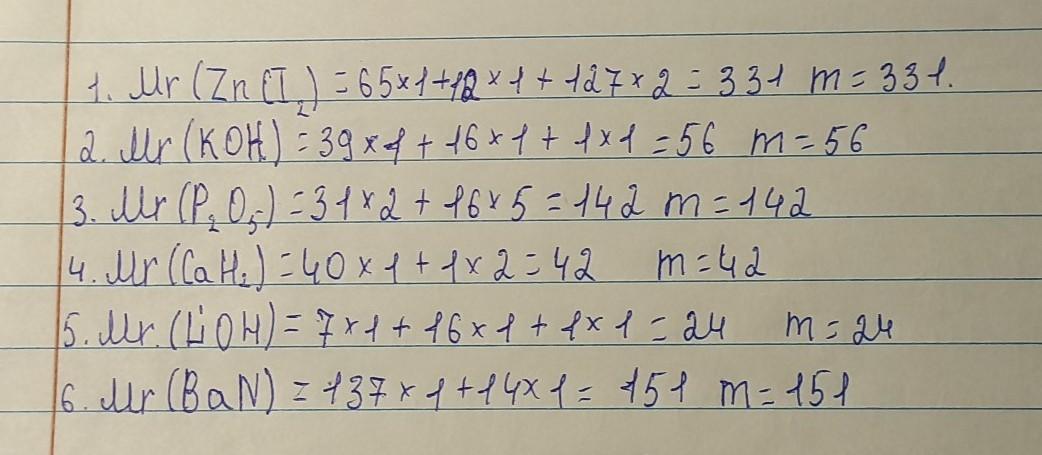 1. Mr (ZnCI₂) = 65×1+12×1+127×2 = 331 m = 331.
2. Mr (KOH) = 39×1+16×1+1×1 = 56 m = 56
3. Mr (P₂O₅) = 31×2+16×5 = 142 m = 142
4. Mr (CaH₂) = 40×1+1×2 = 42 m = 42
5. Mr. (LiOH) = 7×1+16×1+1×1 = 24 m = 24
6. Mr (BaN) = 137×1+14×1 = 151 m = 151